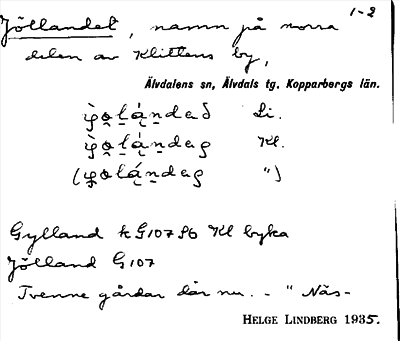 1-2
Jölландet, namn på norra
delen av Klittens by,
Älvdalens sn, Älvdals tg, Kopparbergs län.
Li.
Kl.
")
Gylland k G107 S6 Kl byka
Jölland G107
Tvenne gårdar där nu. - " Näs-
HELGE LINDBERG 1935.